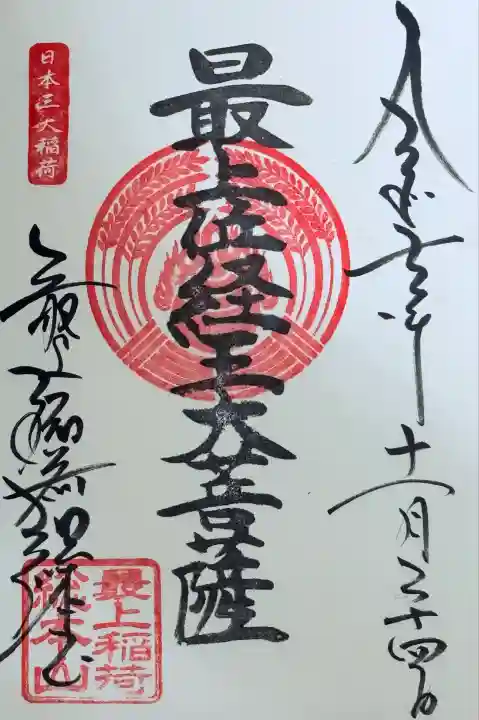 令和元年十一月二十四日
最上位経王大菩薩
日本三大稲荷
最上稲荷
最上稲荷
総本山